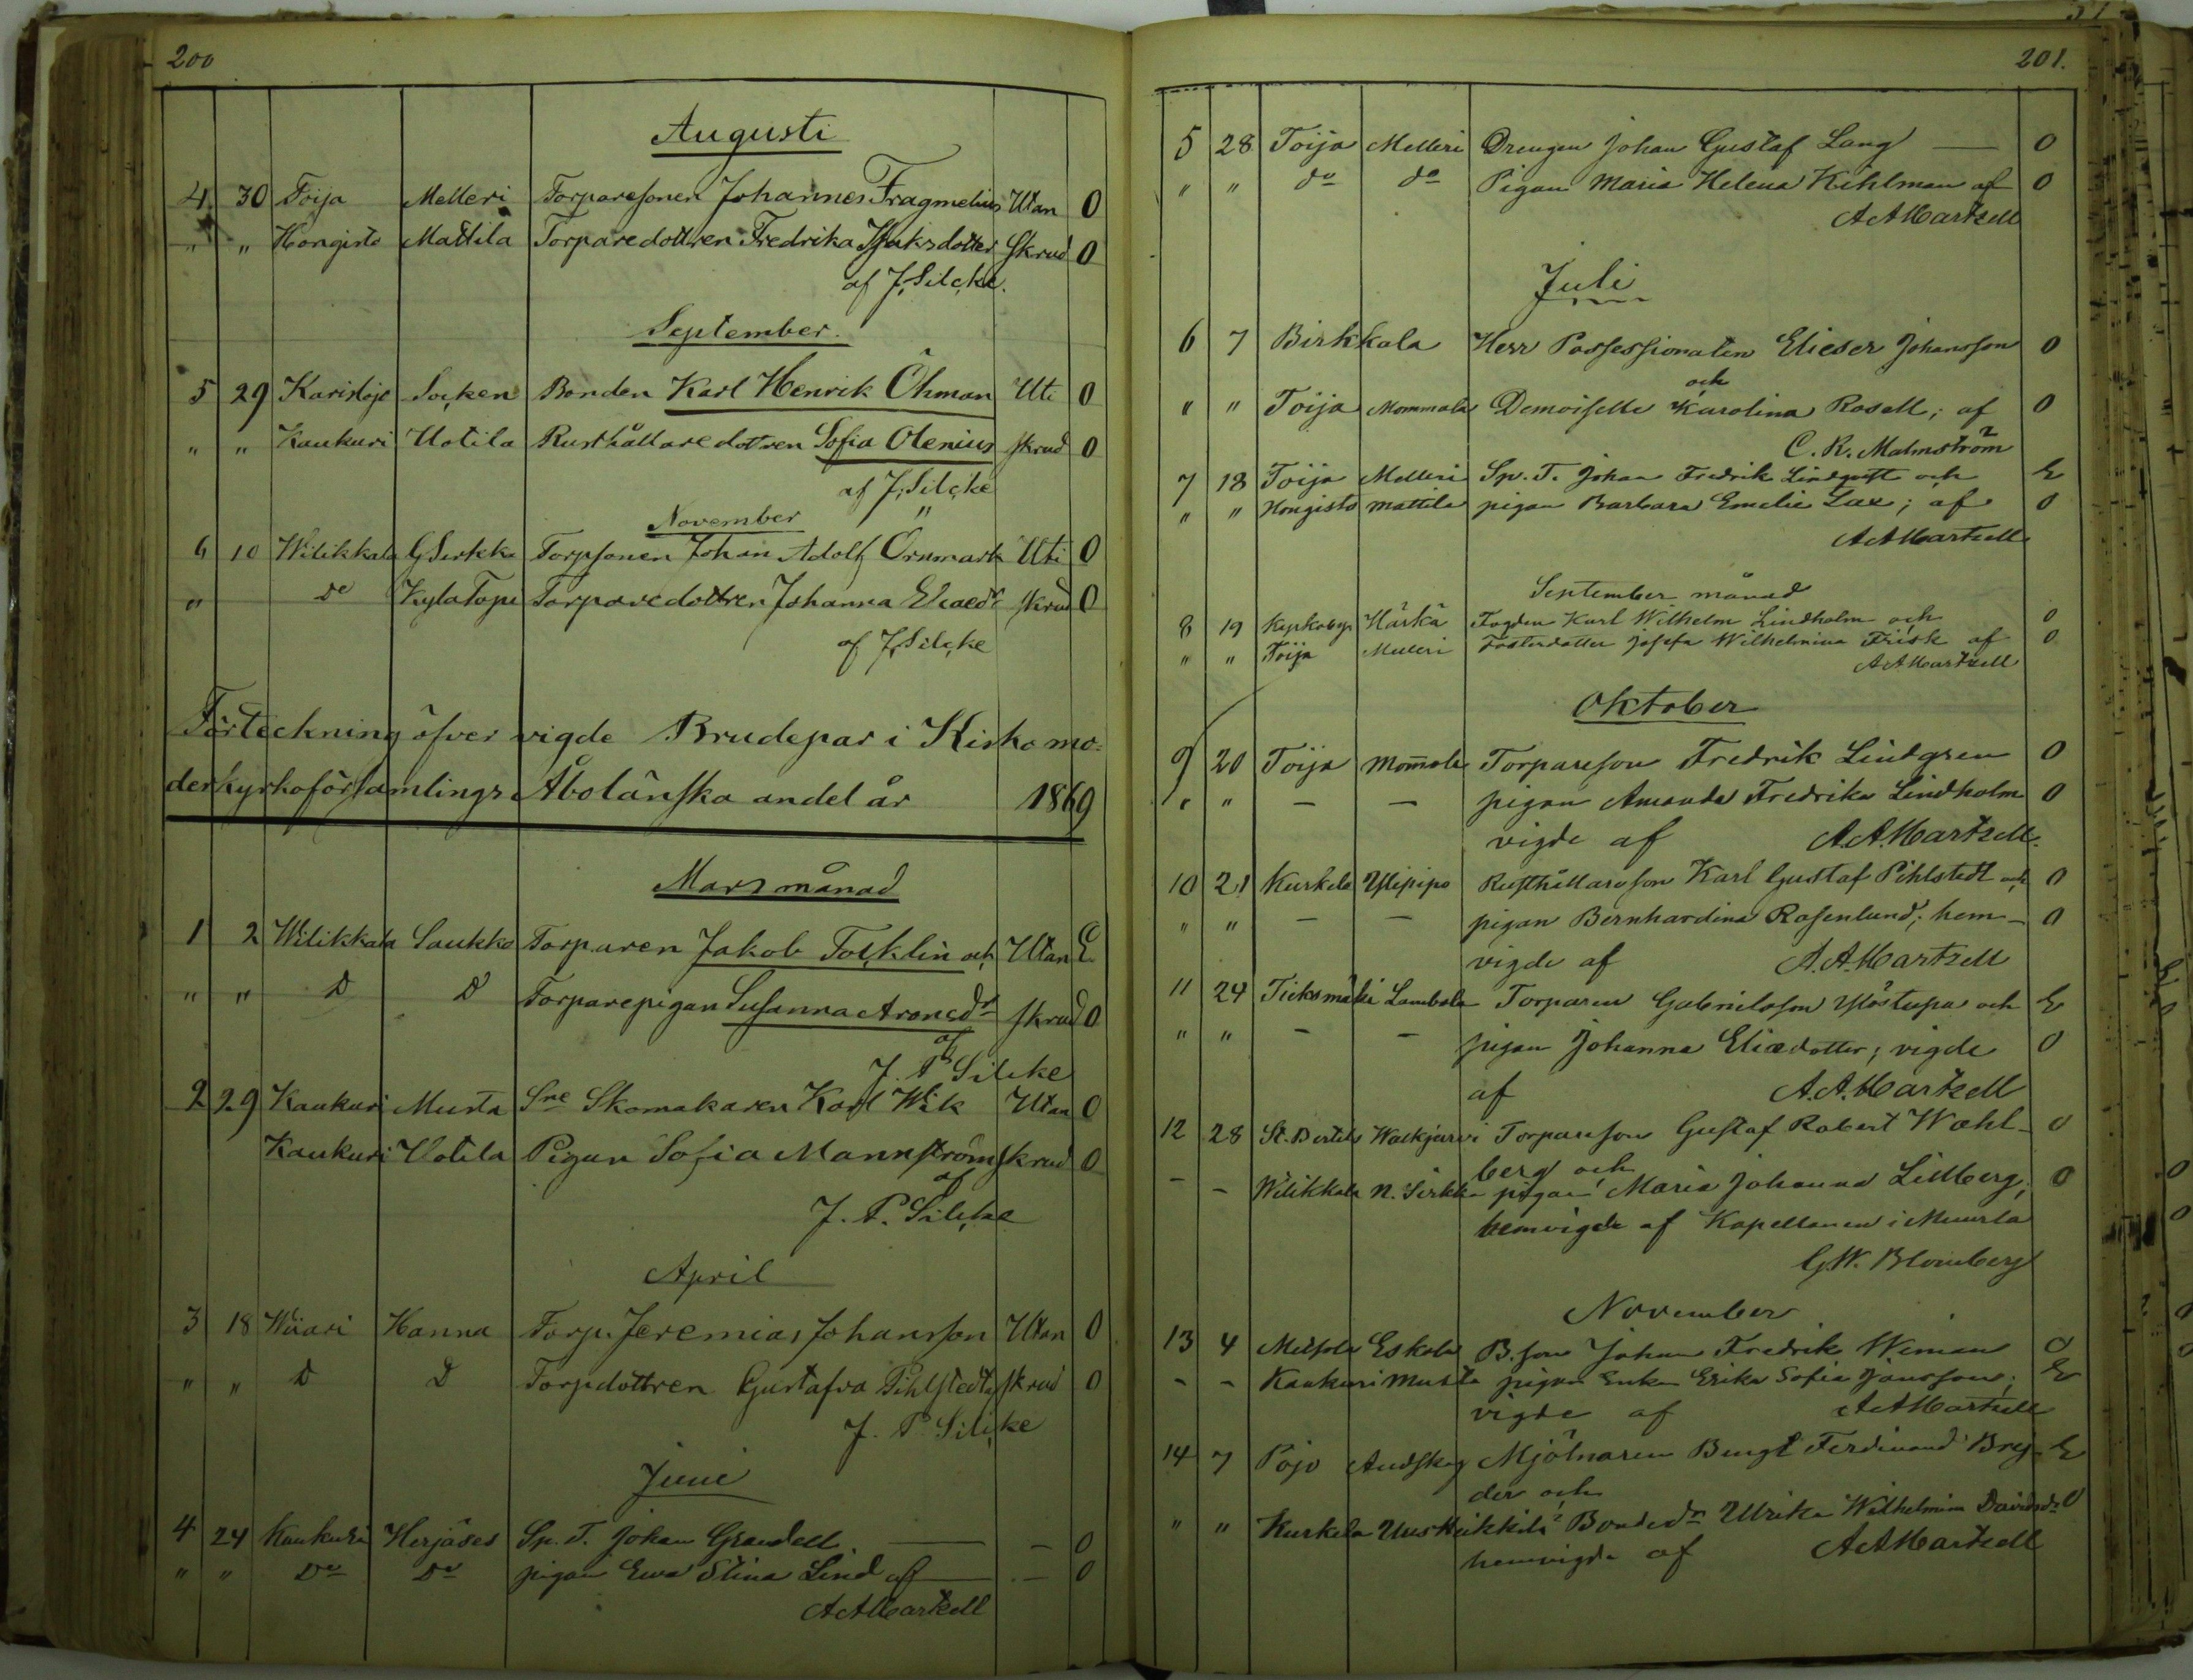 200
Augusti
4. 30 Toija Melleri Torparesonen Johannes Fragmelius Utan 0
" " Hongisto Mattila Torparedottren Fredrika Isaksdotter skrud 0
af J. Silcke.
September.
5 29 Karislojo Socken Bonden Karl Henrik Öhman Uti 0
" " Kaukuri Uotila Rusthållaredottren Sofia Olenius skrud 0
af J. Silcke
November "
6 10 Wilikkala G Sirkka Torpsonen Johan Adolf Örnmark Uti 0
" Do Kylatopi Torparedottren Johanna Eliaedr skrud 0
af J. Silcke
Förteckning öfver vigde Brudepar i Kisko mo=
derkyrkoförsamlings Åbolänska andel år 1869
Mars månad
1 2 Wilikkala Saukko Torparen Jakob Focklin och Utan E
" " D D Torparepigan Susanna Aronsdr skrud 0
af
J. P. Silcke
2 29 Kaukuri Musta Sne Skomakaren Karl Wik Utan 0
Kaukuri Uotila Pigan Sofia Mannström skrud 0
af
J. P. Silcke
April
3 18 Wiiari Hanna Torp. Jeremias Johansson Utan 0
" " D D Torpdottren Gustafva Pihlstedt skrud 0
J. P. Silcke
Juni
4 24 Kaukuri Herjäses Sp. T. Johan Grandell — — 0
" " Do Do pigan Ewa Stina Lind af — — 0
A A Martzell
201.
5 28 Toija Melleri Drengen Johan Gustaf Lang — 0
" " do do Pigan Maria Helena Kihlman af 0
A A Martzell
Juli
6 7 Birkkala Herr Possessionaten Elieser Johansson 0
och
" " Toija Mommala Demoiselle Karolina Rosell; af 0
C. R. Malmström
7 18 Toija Melleri Sp. T. Johan Fredrik Lindqvist och E
" " Hongisto Mattila pigan Barbara Emelie Lax; af 0
A A Martzell
September månad
8 19 Kyrkoby Härkä Fogden Karl Wilhelm Lindholm och 0
" " Toija Melleri Fosterdotter Josefa Wilhelmina Frisk af 0
A A Martzell
Oktober
9 20 Toija Mommala Torpareson Fredrik Lindgren 0
" " — — pigan Amanda Fredrika Lindholm 0
vigde af A. A. Martzell.
10 21 Kurkela Ylipipo Rusthållareson Karl Gustaf Pihlstedt och 0
" " — — pigan Bernhardina Rosenlund; hem- 0
vigde af A. A. Martzell
11 24 Ticksmäki Lambala Torparen Gabrielsson Ylöstupa och E
" " — — pigan Johanna Eliædotter; vigde 0
af A. A. Martzell
12 28 St. Bertils Walkjärvi Torpareson Gustaf Robert Wahl- 0
berg och
- - Wilikkala N. Sirkka pigan Maria Johanna Lillberg; 0
hemvigde af Kapellanen i Muurla
G. W. Blomberg
November
13 4 Metsola Eskola B. son Johan Fredrik Weman 0
- - Kaukuri Musta pigan Enkan Erika Sofia Jansson; E
vigde af A A Martzell
14 7 Pojo Andskog Mjölnaren Bengt Ferdinand Brej- E
der och
" " Kurkela Uusheikkilä Bondedr Ulrika Wilhelmina Davidsdr 0
hemvigde af A A Martzell